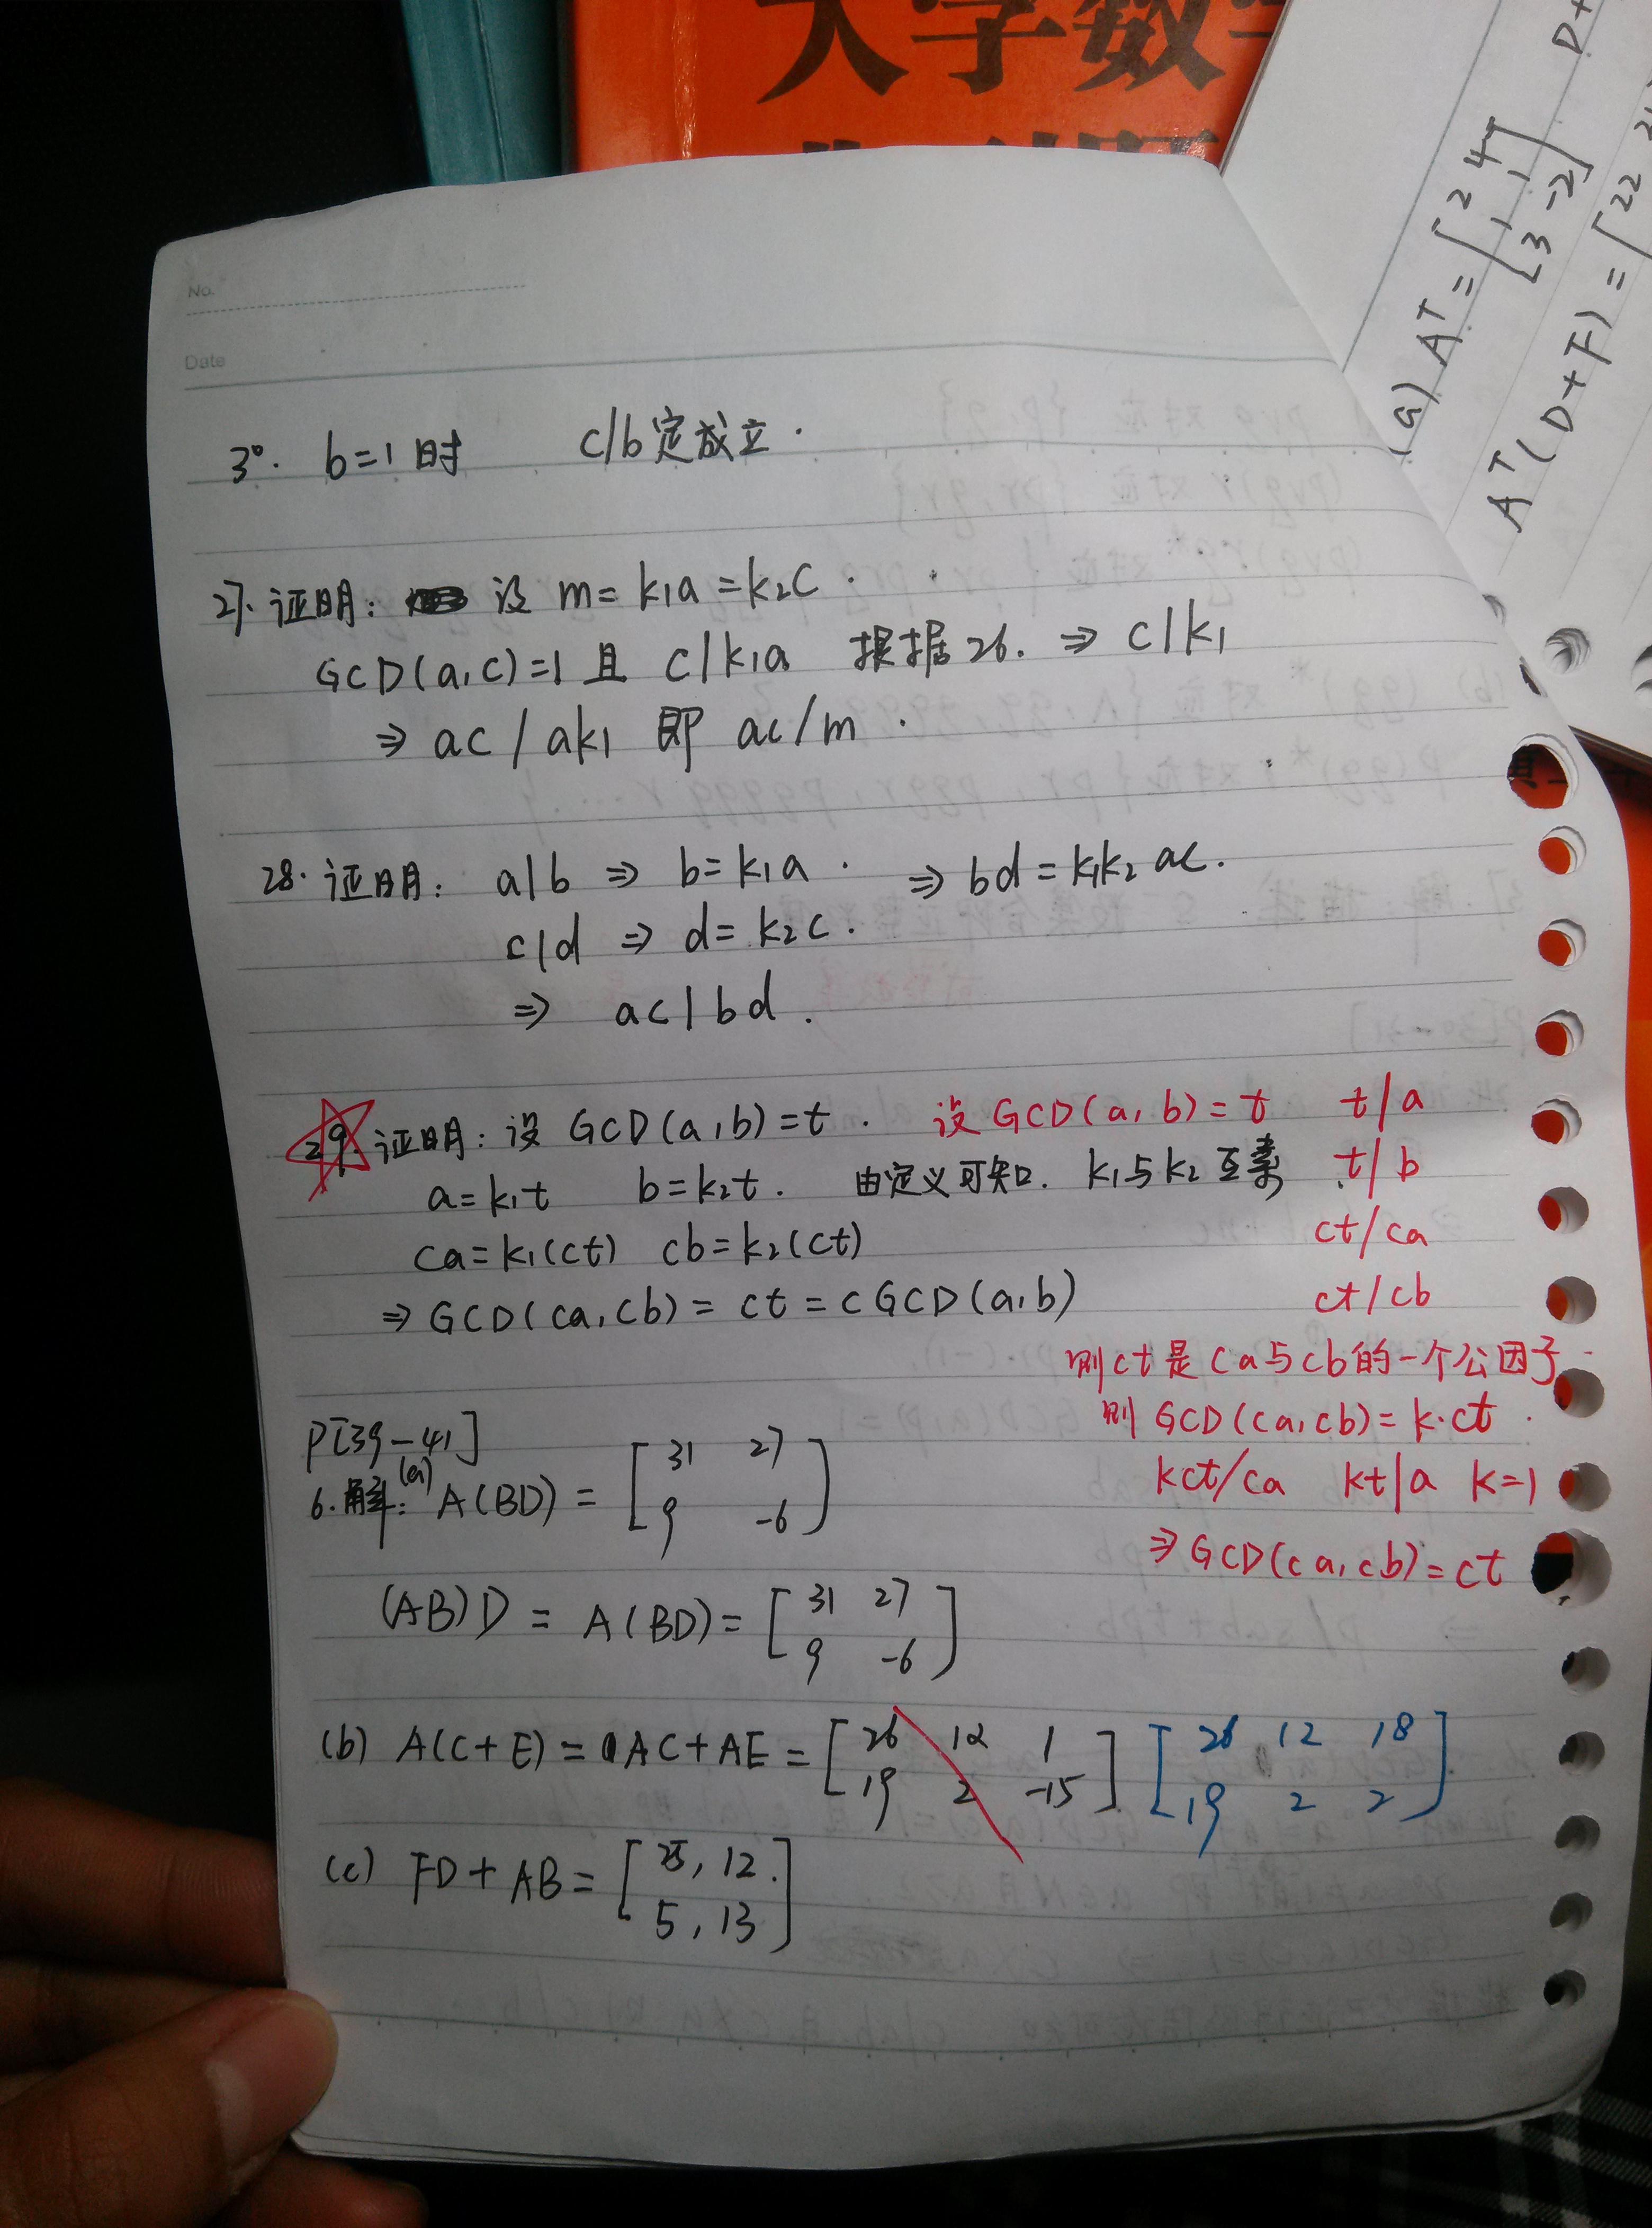 大学数
No.
Date
3°. b=1时 c/b定成立.
27. 证明: 设 m=k₁a=k₂c.
GCD(a,c)=1 且 c/k₁a 根据26. ⇒ c/k₁
⇒ ac/ak₁ 即 ac/m.
28. 证明: a|b ⇒ b=k₁a. ⇒ bd=k₁k₂ac.
c/d ⇒ d=k₂c.
⇒ ac|bd.
29. 证明: 设 GCD(a,b)=t.
a=k₁t b=k₂t. 由定义可知. k₁与k₂互素
ca=k₁(ct) cb=k₂(ct)
⇒ GCD(ca,cb)=ct=cGCD(a,b)
设 GCD(a,b)=t t/a
t/b
ct/ca
ct/cb
则ct是ca与cb的一个公因子
则 GCD(ca,cb)=k·ct.
kct/ca kt|a k=1
⇒ GCD(ca,cb)=ct
P[39-41]
6. 解: (a) A(BD) = [31 27
9 -6]
(AB)D = A(BD) = [31 27
9 -6]
(b) A(C+E) = AC+AE = [26 12 1 [26 12 18
19 2 -15] 19 2 2]
(c) FD+AB = [25, 12
5, 13]
(a) Aᵀ = [2 4
1 1
3 -2]
Aᵀ(D+F) = [22